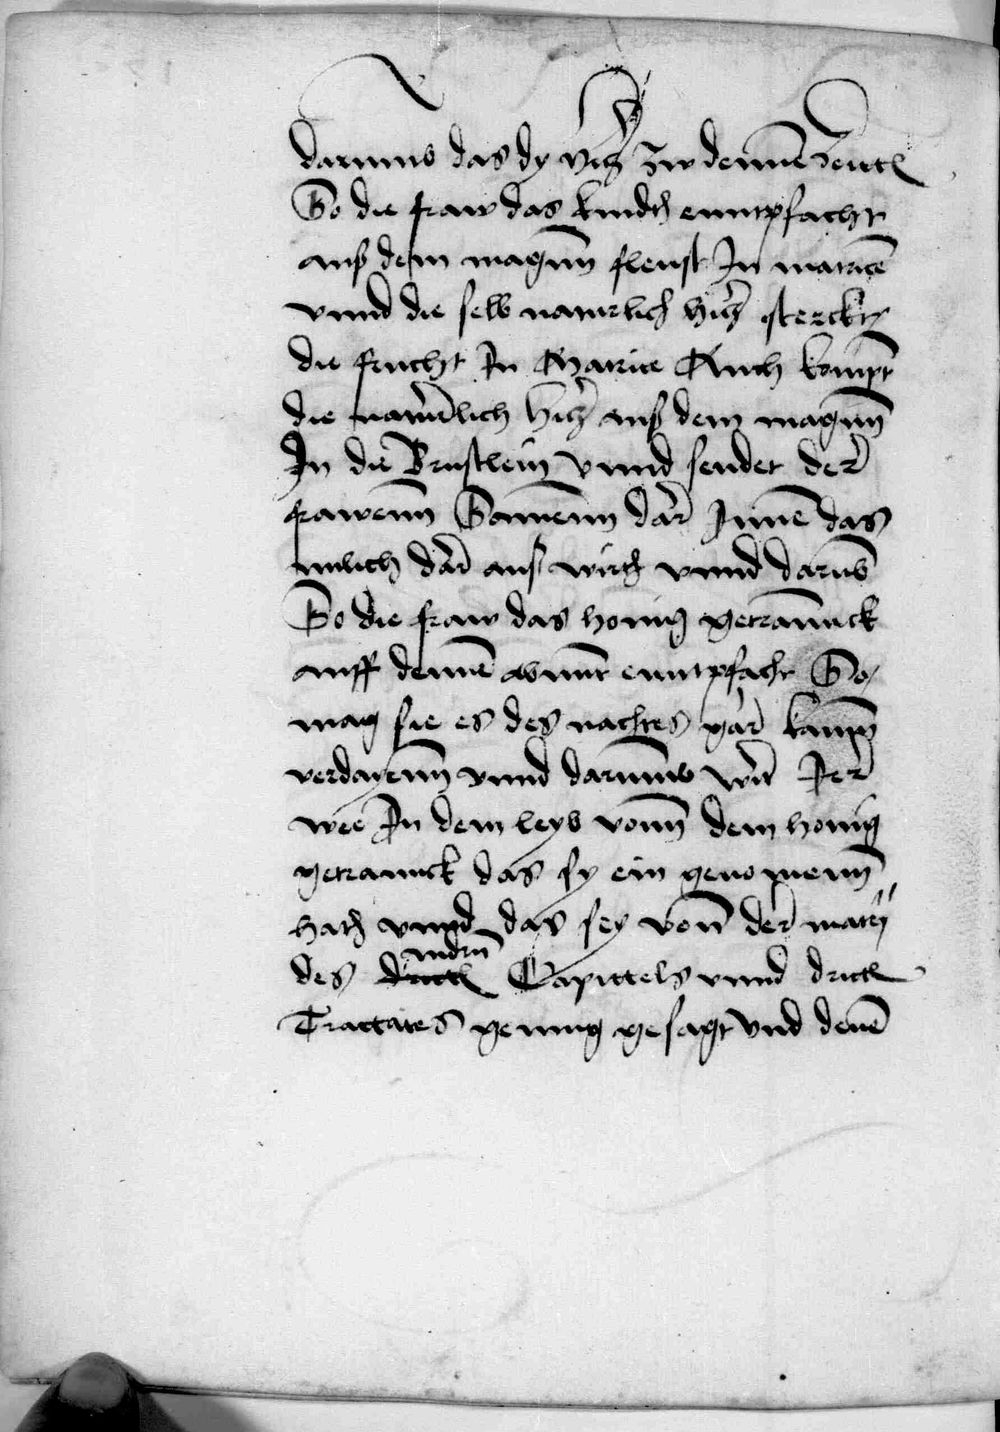 darumb das dy hicz zw dennen zeittn
So die fraw das kindth enntpfacht
auß dem magnn fleust In matricē
vnnd die selb naturlich hicz sterckt
die frucht In Matrice Auch kompt
die natürlich hicz auß dem magnn̄
In die Brustlein vnnd sendet der
frawenn Samenn dar Innē das
milich dar auß wirt vnnd darūb
So die fraw das honig getrannck
auff dennē abennt enntpfacht So
mag sie es des nachtes gar kaum
verdayenn vnnd darumb wirt Ir
wee In dem leyb vonn dem honig
getrannck das sy ein genomenn
hath vnnd das sey vonn der matery
des andrn Capittels vnnd drittn
Tractates genung gesagt vnd denē